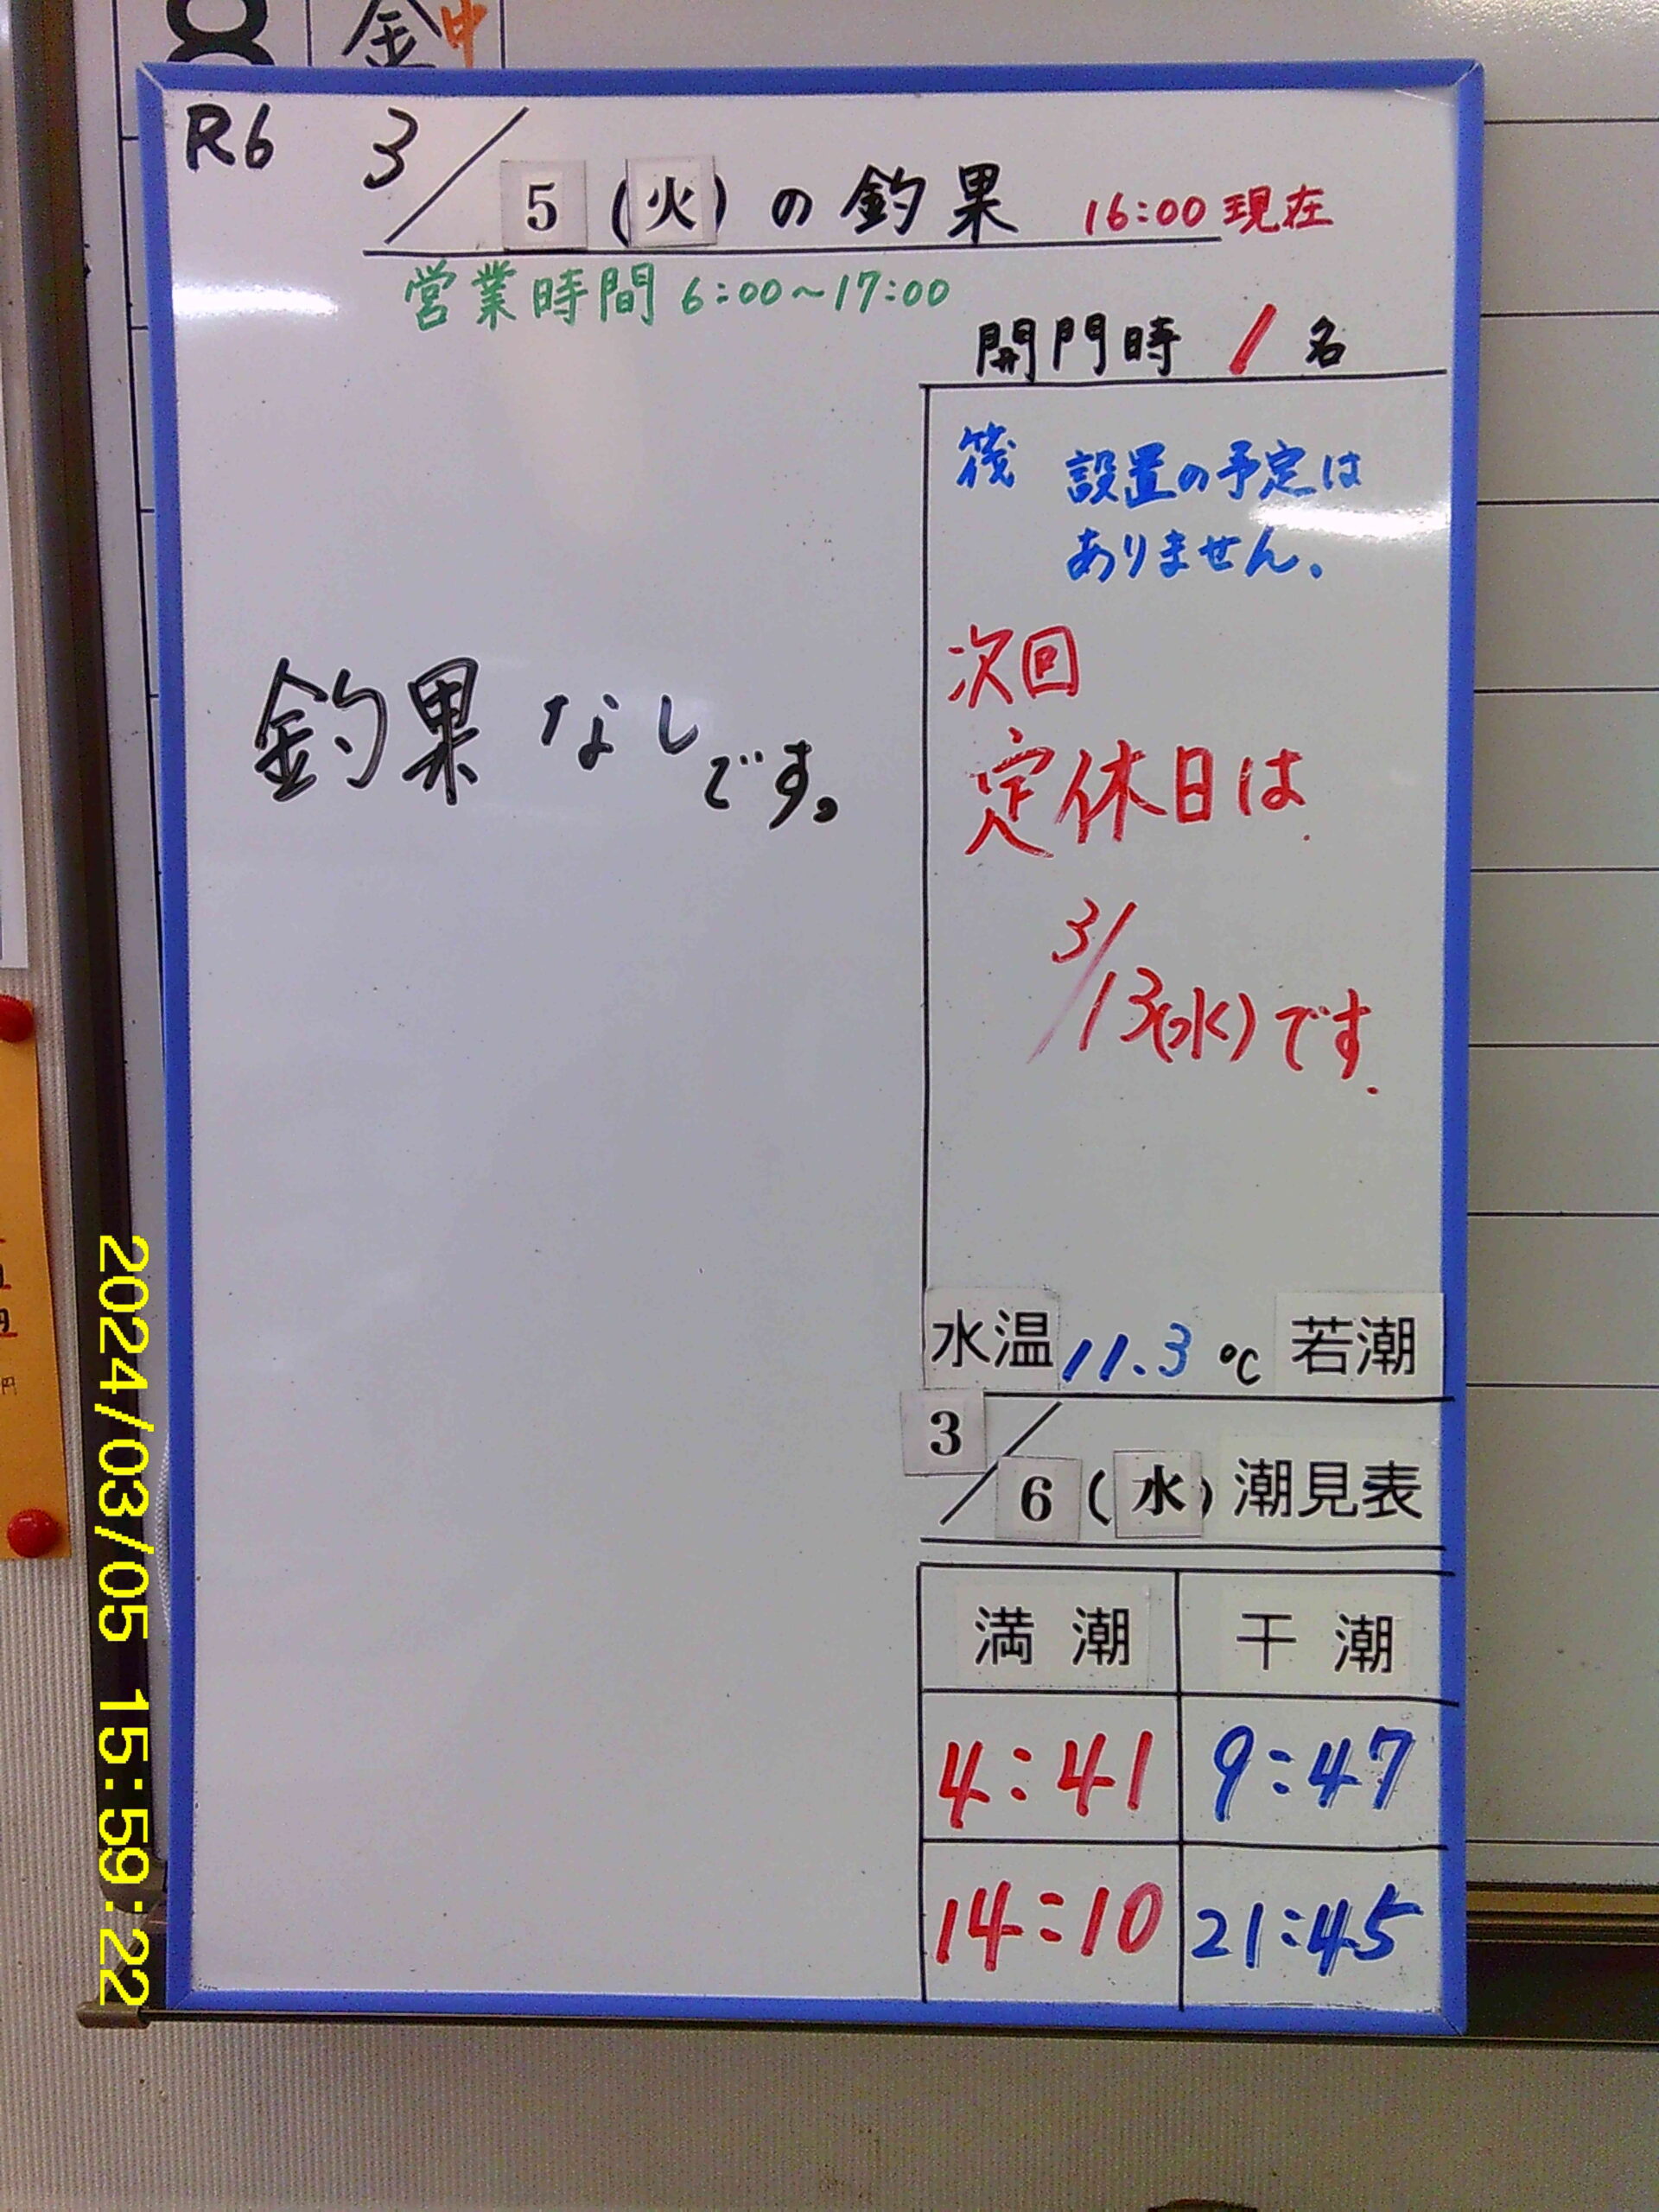 金 中
R6 3/5(火)の釣果 16:00現在
営業時間 6:00~17:00
開門時 1名
筏 設置の予定は
ありません。
次回
定休日は
3/13(水)です.
釣果なしです。
水温 11.3℃ 若潮
3/6(水)潮見表
満潮 干潮
4:41 9:47
14:10 21:45
2024/03/05 15:59:22
円